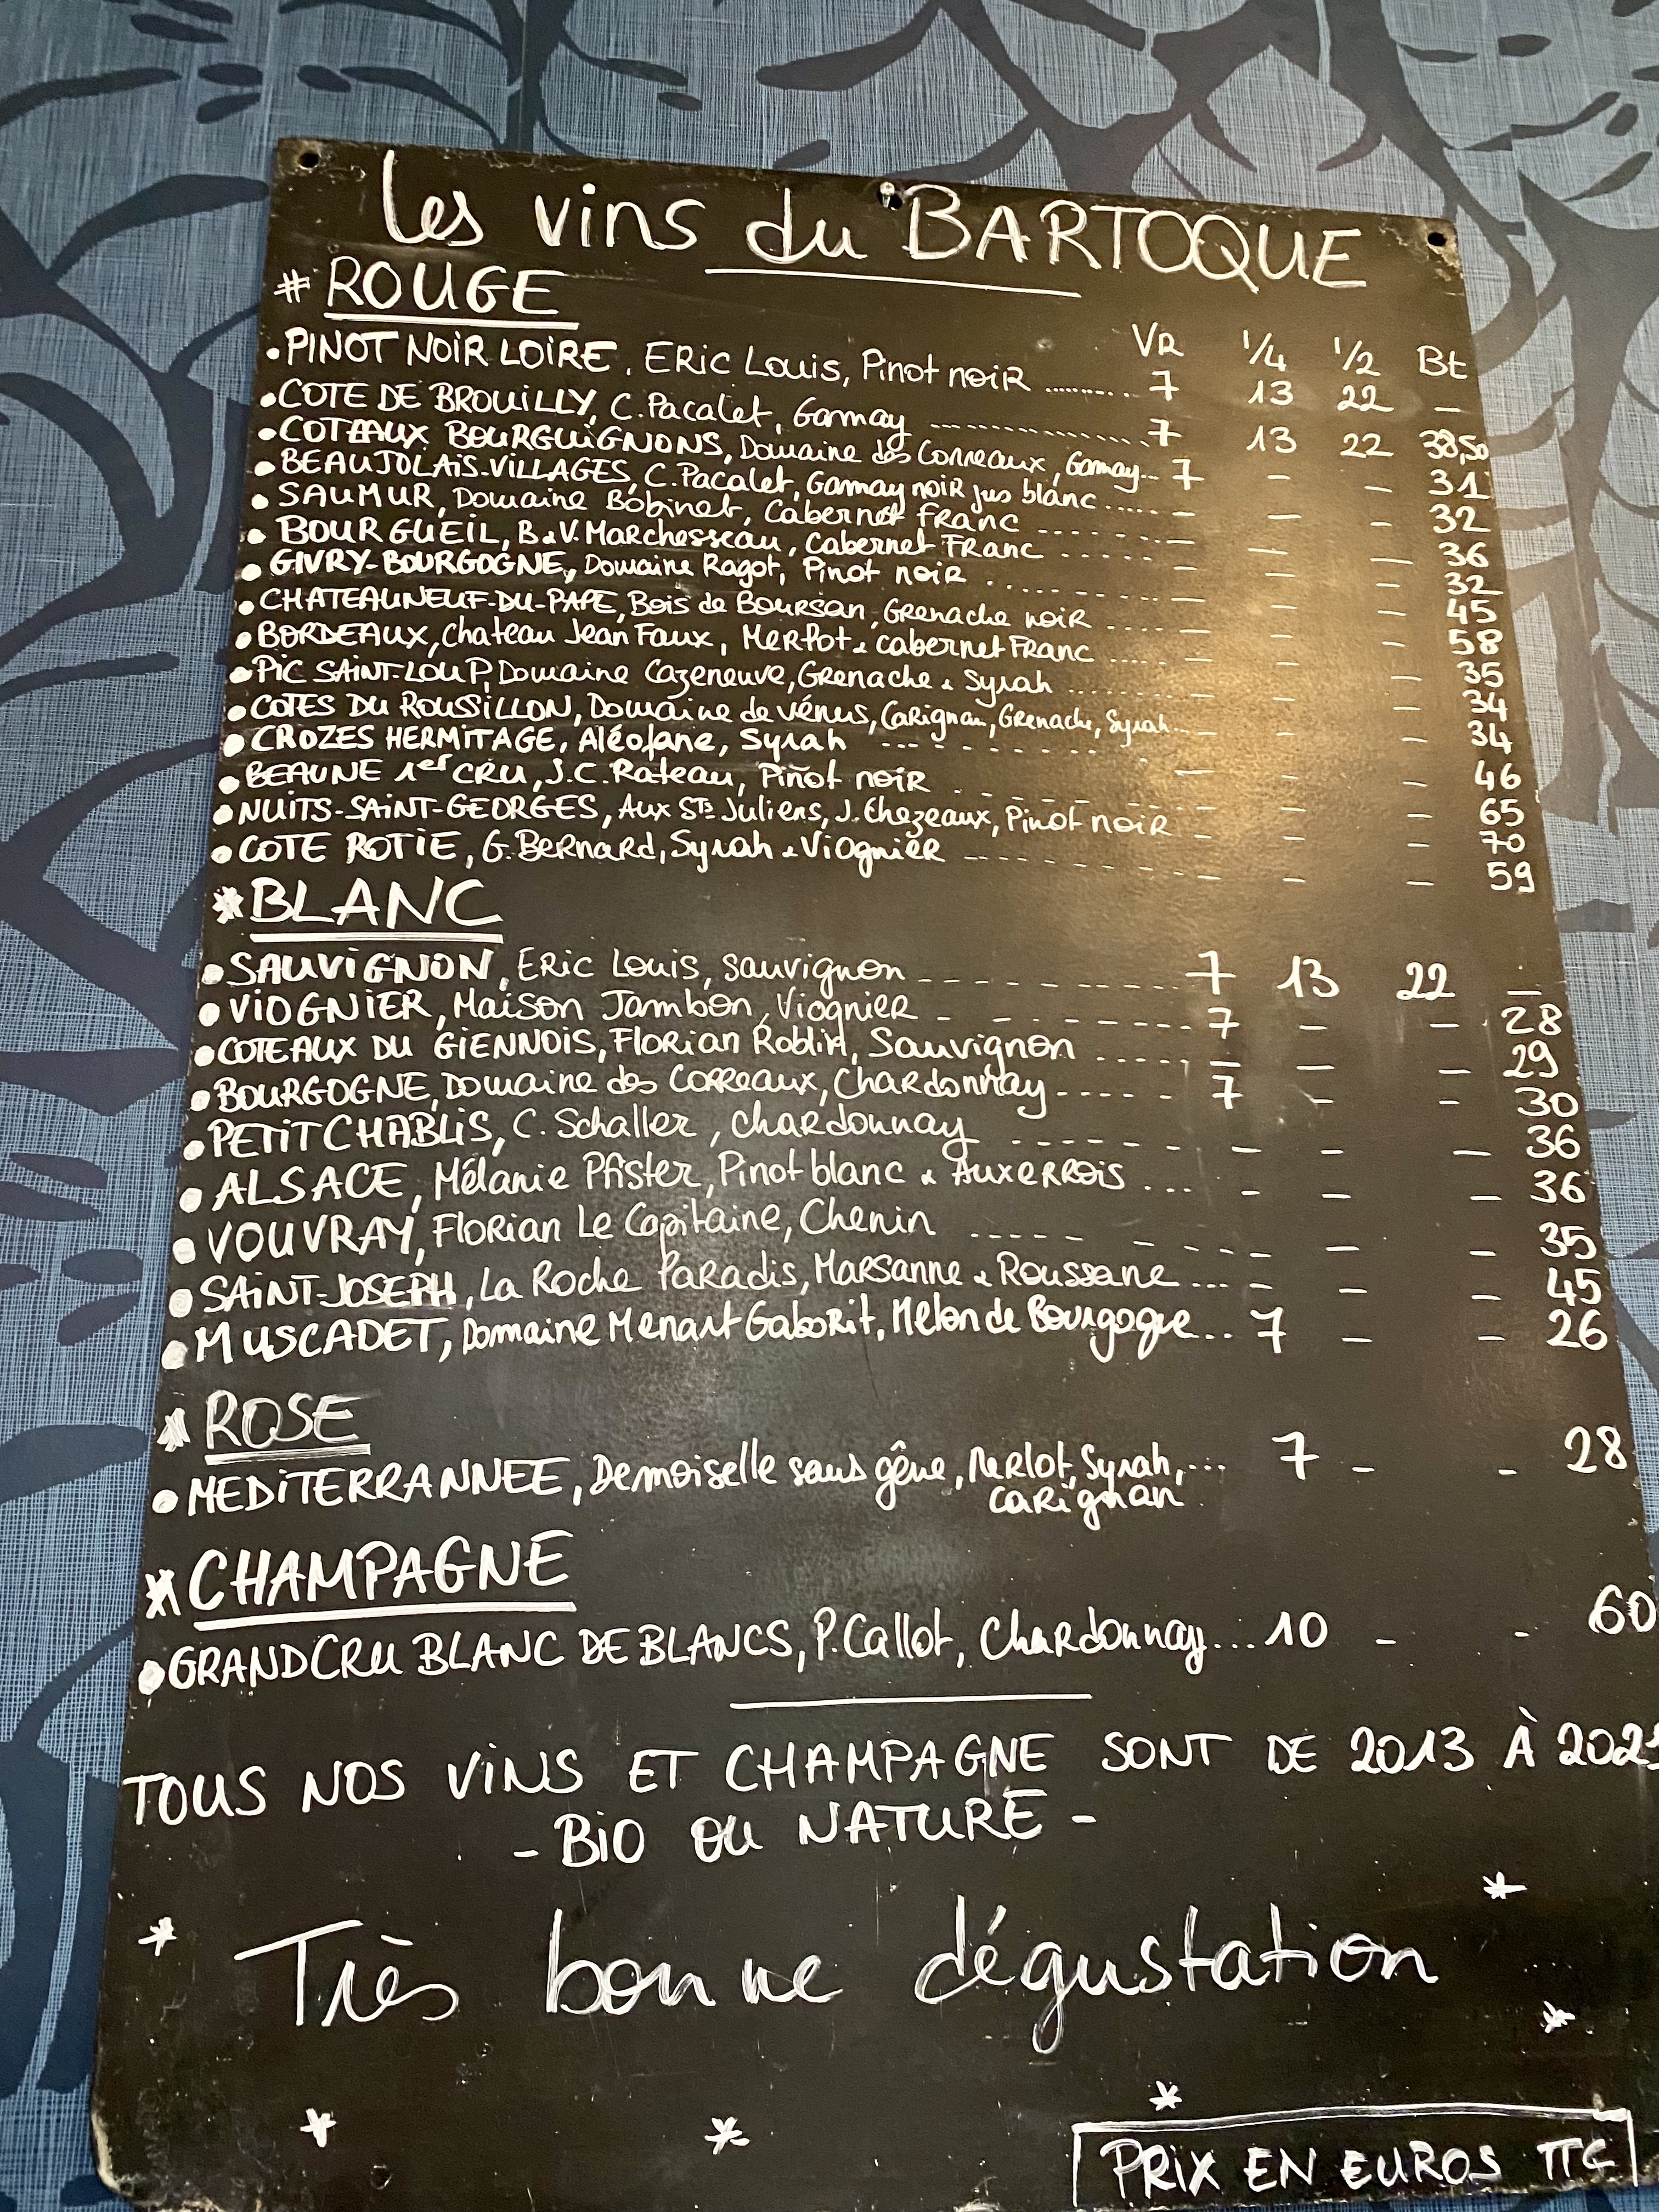 les vins du BARTOQUE
# ROUGE
VR 1/4 1/2 Bt
• PINOT NOIR LOIRE, ERIC LOUIS, Pinot noir ........ 7 13 22 —
• COTE DE BROUILLY, C. Pacalet, Gamay ........ 7 13 22 38,50
• COTEAUX BOURGUIGNONS, Domaine des Correaux, Gamay... 7 - - 31
• BEAUJOLAIS-VILLAGES, C. Pacalet, Gamay noir jus blanc ..... - - - 32
• SAUMUR, Domaine Bobinet, Cabernet Franc ...... - - - 36
• BOURGUEIL, B & V. Marchesseau, Cabernet Franc ..... - - - 32
• GIVRY-BOURGOGNE, Domaine Ragot, Pinot noir ...... - - - 45
• CHATEAUNEUF-DU-PAPE, Bois de Boursan, Grenache noir ..... - - - 58
• BORDEAUX, Chateau Jean Faux, Merlot & cabernet Franc ..... - - - 35
• PIC SAINT-LOUP, Domaine Cazeneuve, Grenache & Syrah ........ - 34
• COTES DU ROUSSILLON, Domaine de vénus, Carignan, Grenache, Syrah... - - - 34
• CROZES HERMITAGE, Aléofane, Syrah ........ - - - 46
• BEAUNE 1er CRU, J.C. Rateau, Pinot noir ...... - - - 65
• NUITS-SAINT-GEORGES, Aux Sts Juliens, J. Chezeaux, Pinot noir - - - 70
• COTE ROTIE, G. Bernard, Syrah & Viognier ...... - - - 59
* BLANC
• SAUVIGNON, ERIC LOUIS, sauvignon ........ 7 13 22 —
• VIOGNIER, Maison Jambon, Viognier ........ 7 - - 28
• COTEAUX DU GIENNOIS, Florian Roblin, Sauvignon ..... - - - 29
• BOURGOGNE, Domaine des Correaux, Chardonnay ..... 7 - - 30
• PETIT CHABLIS, C. Schaller, chardonnay ...... - - - 36
• ALSACE, Mélanie Pfister, Pinot blanc & Auxerrois ... - - - 36
• VOUVRAY, Florian Le Capitaine, Chenin ..... - - - 35
• SAINT-JOSEPH, La Roche Paradis, Marsanne & Roussane ... - - - 45
• MUSCADET, Domaine Menart Gaborit, Melon de Bourgogne... 7 - - 26
* ROSE
• MEDITERRANNEE, Demoiselle sans gêne, Merlot, Syrah, ... 7 - - 28
carignan
* CHAMPAGNE
• GRAND CRU BLANC DE BLANCS, P. Callot, Chardonnay... 10 - - 60
TOUS NOS VINS ET CHAMPAGNE SONT DE 2013 À
- BIO OU NATURE -
* Très bonne dégustation *
PRIX EN EUROS TTC